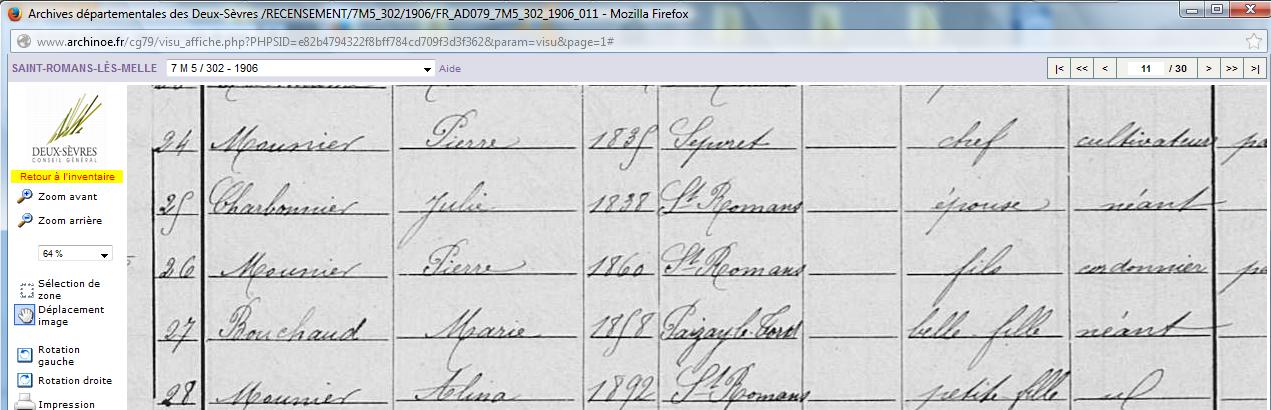 Archives départementales des Deux-Sèvres /RECENSEMENT/7M5_302/1906/FR_AD079_7M5_302_1906_011 - Mozilla Firefox
www.archinoe.fr/cg79/visu_affiche.php?PHPSID=e82b4794322f8bff784cd709f3d3f362&param=visu&page=1#
SAINT-ROMANS-LÈS-MELLE 7 M 5 / 302 - 1906 Aide |< << < 11 / 30 > >> >|
DEUX-SÈVRES
CONSEIL GÉNÉRAL
Retour à l'inventaire
Zoom avant
Zoom arrière
64 %
Sélection de
zone
Déplacement
image
Rotation
gauche
Rotation droite
Impression
24 Mounier Pierre 1835 Sepvret chef cultivateur pa
25 Charbonnier Julie 1838 St Romans épouse néant
26 Mounier Pierre 1860 St Romans fils cordonnier pa
27 Bouchaud Marie 1858 Paizay-le-Tort belle-fille néant
28 Mounier Alina 1892 St Romans petite fille